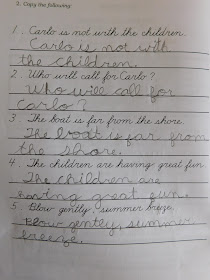 3. Copy the following:
1. Carlo is not with the children.
Carlo is not with
the children.
2. Who will call for Carlo?
Who will call for
Carlo?
3. The boat is far from the shore.
The boat is far from
the shore.
4. The children are having great fun.
The children are
having great fun.
5. Blow gently, summer breeze.
Blow gently, summer
breeze.